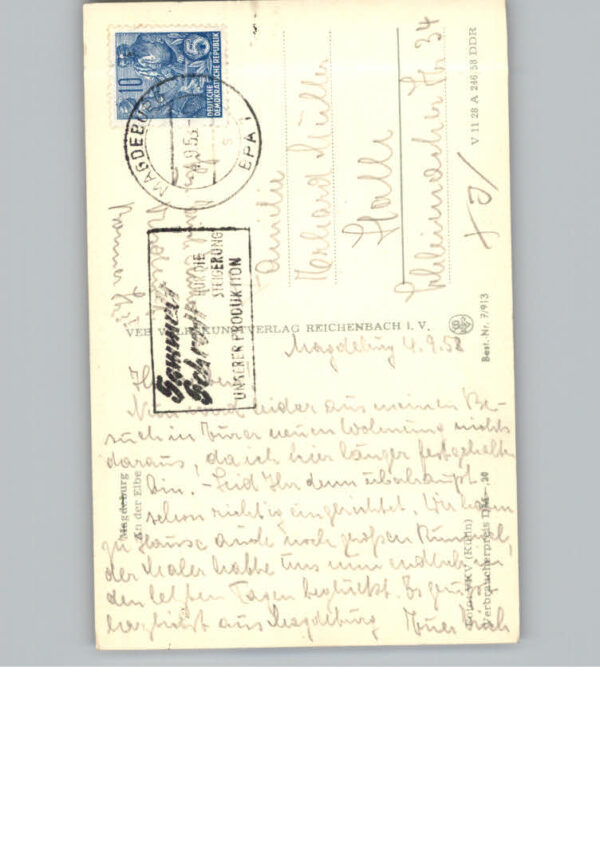 10
5
DEUTSCHE
DEMOKRATISCHE REPUBLIK
MAGDEBURG
BPA 1
Sammelt
Schrott
FÜR DIE
STEIGERUNG
UNSERER PRODUKTION
Familie
Gerhard Müller
Halle
Schleiermacher Str 34
V 11 28 A 246 58 DDR
VEB VOLKSKUNSTVERLAG REICHENBACH I. V.
Best.-Nr. 7/913
Magdeburg
An der Elbe
Foto: VKV (Kühn)
Verbraucherpreis DM -,20
Magdeburg 4.9.58
Ihr Lieben
Nun wird leider aus meinem Be-
such in Eurer neuen Wohnung nichts
daraus, da ich hier länger festgehalten
bin. - Seid Ihr denn überhaupt
schon richtig eingerichtet. Wir haben
zu Hause auch noch großen Rummel,
der Maler hatte uns nun endlich in
den letzten Tagen beglückt. Es grüßt
herzlichst aus Magdeburg Euer